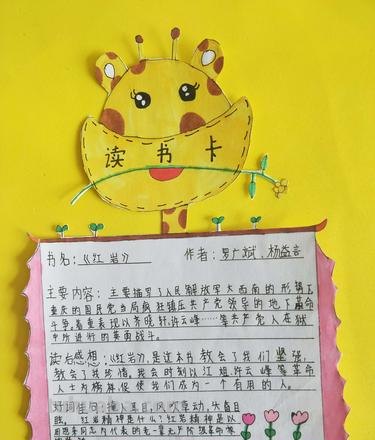 读书卡
书名：《红岩》 作者：罗广斌、杨益言
主要内容：主要描写了人民解放军大西南的形势下
重庆的国民党当局疯狂镇压共产党领导的地下革命
斗争。着重表现以齐晓轩、许云峰……等共产党人在狱
中所进行的英勇战斗。
读后感想：《红岩》，是这本书教会了我们坚强，
教会了我珍惜。我会时刻以江姐、许云峰等革命
人士为榜样，促使我们成为一个有用的人。
好词佳句：撞人耳目，风吹草动，大庭目
睹，红岩精神是什么？红岩精神是以